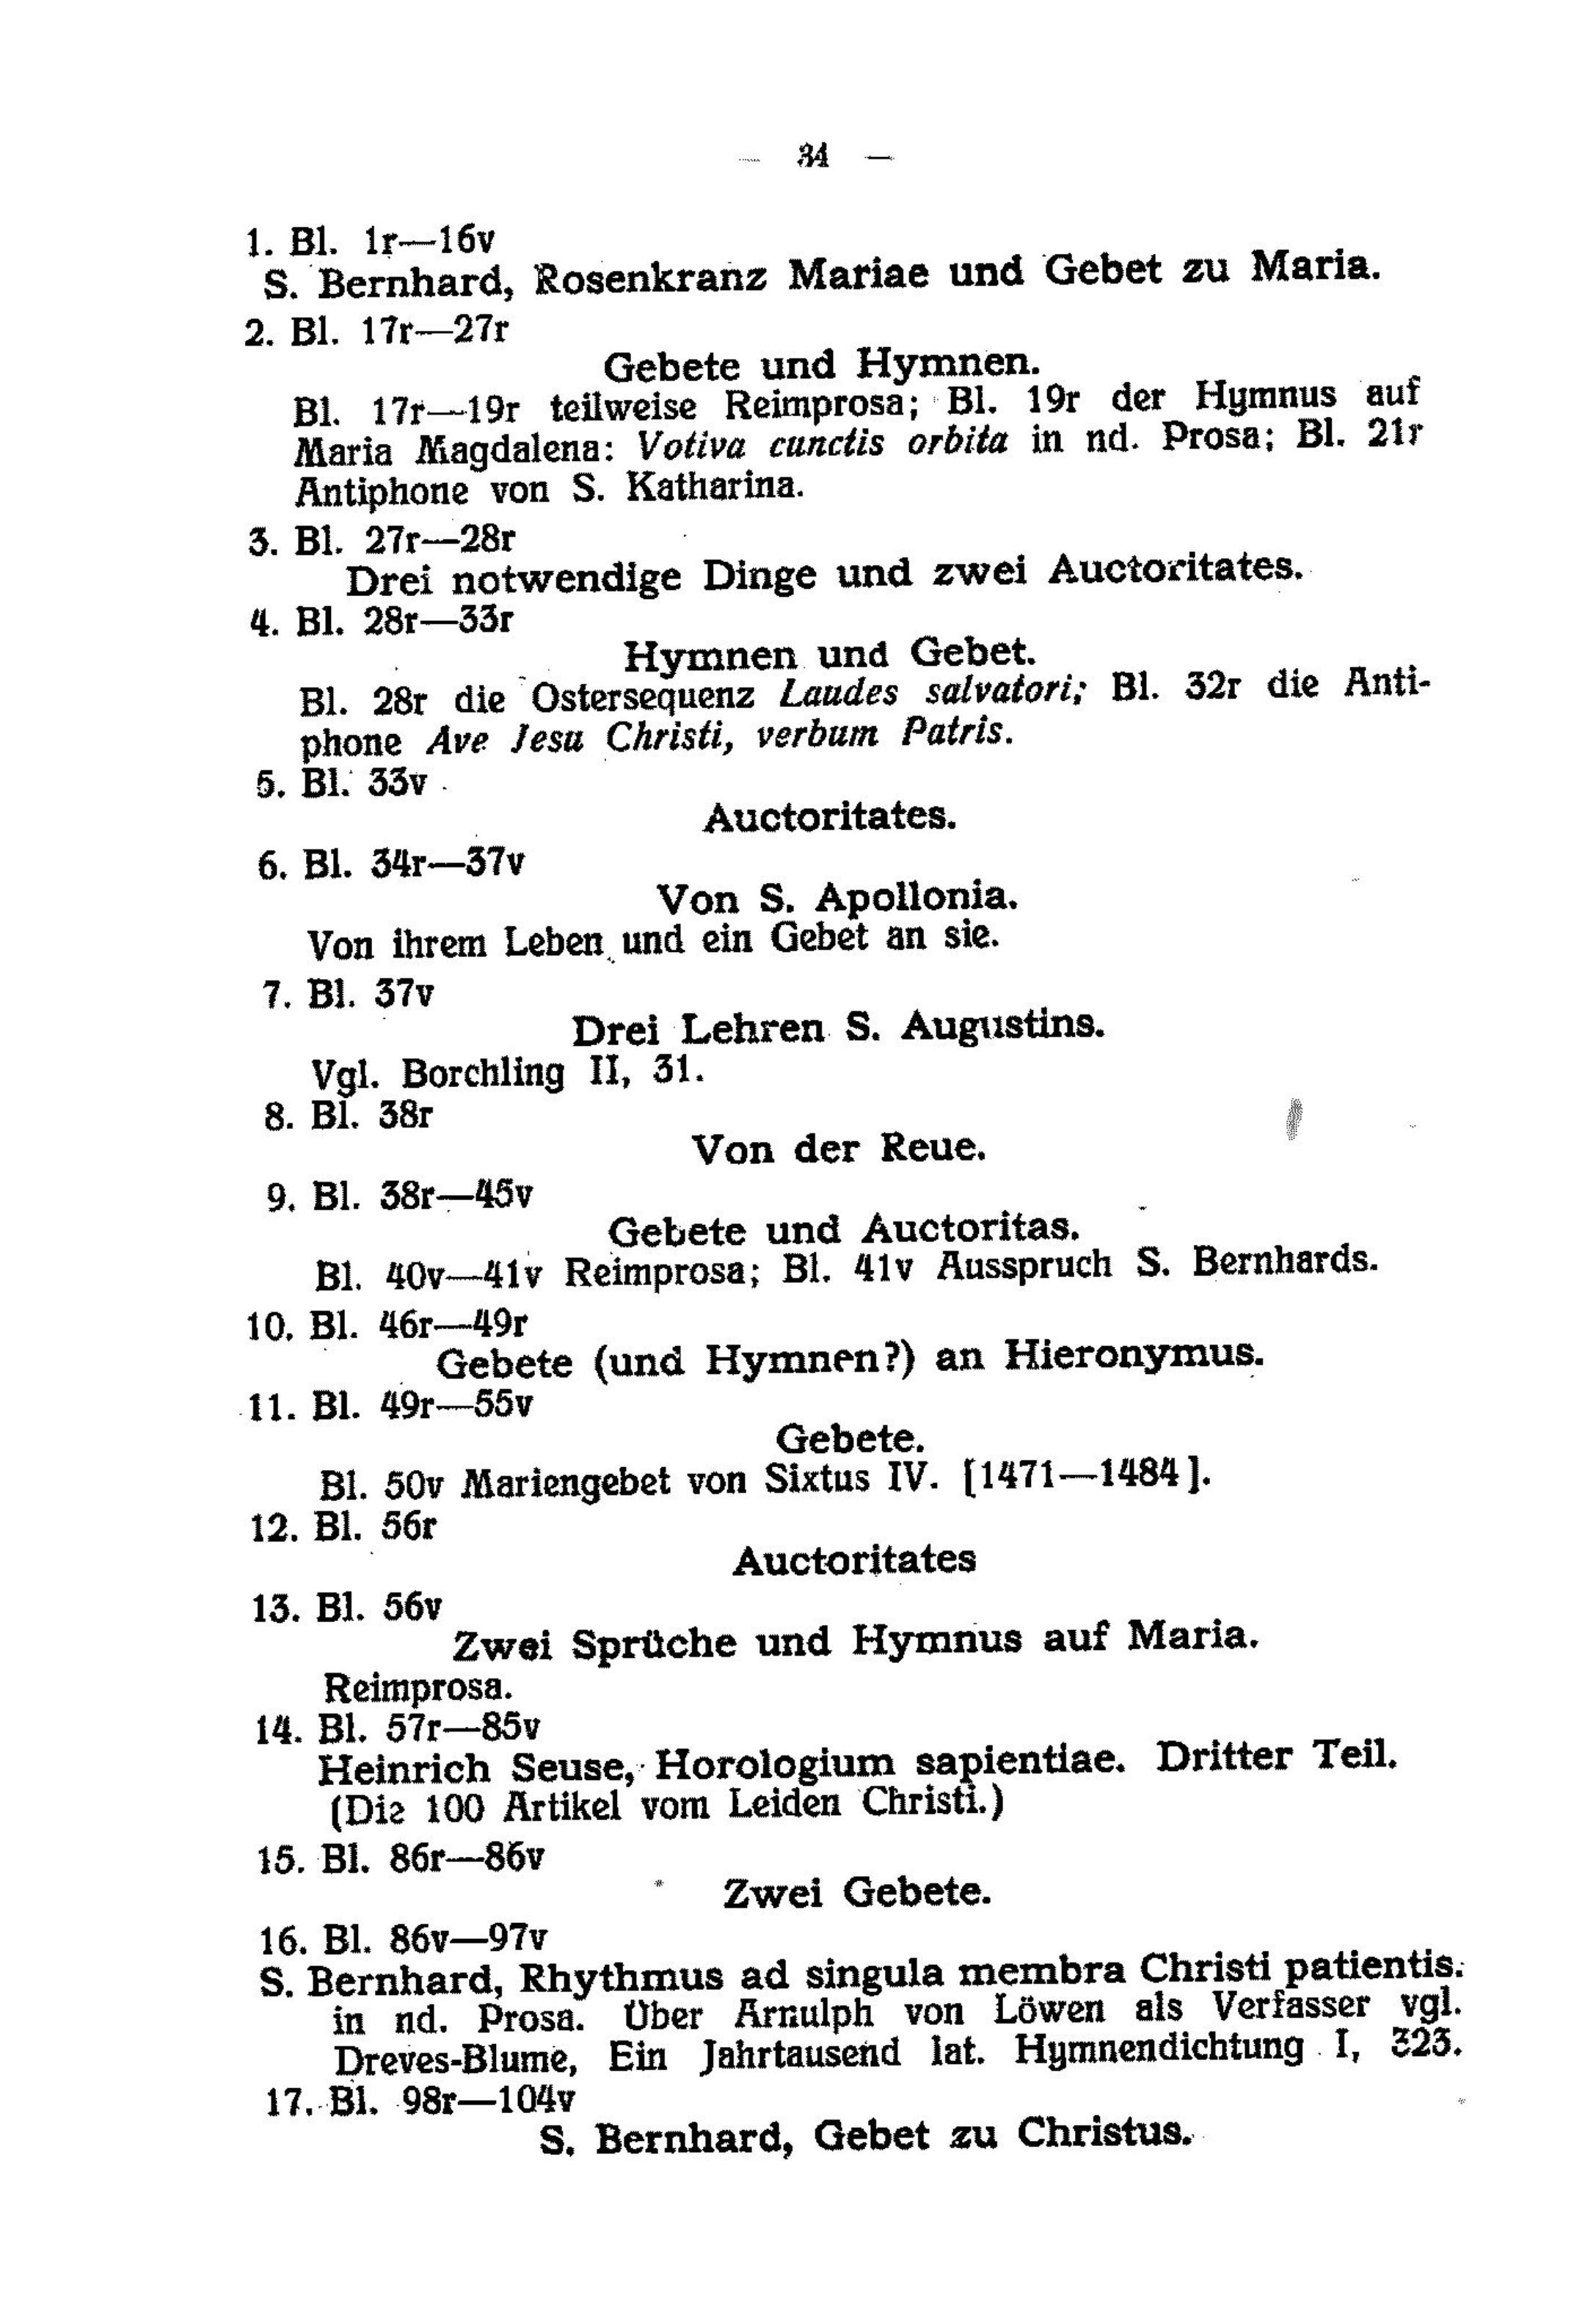 — 34 —
1. Bl. 1r—16v
S. Bernhard, Rosenkranz Mariae und Gebet zu Maria.
2. Bl. 17r—27r
Gebete und Hymnen.
Bl. 17r—19r teilweise Reimprosa; Bl. 19r der Hymnus auf
Maria Magdalena: Votiva cunctis orbita in nd. Prosa; Bl. 21r
Antiphone von S. Katharina.
3. Bl. 27r—28r
Drei notwendige Dinge und zwei Auctoritates.
4. Bl. 28r—33r
Hymnen und Gebet.
Bl. 28r die Ostersequenz Laudes salvatori; Bl. 32r die Anti-
phone Ave Jesu Christi, verbum Patris.
5. Bl. 33v
Auctoritates.
6. Bl. 34r—37v
Von S. Apollonia.
Von ihrem Leben und ein Gebet an sie.
7. Bl. 37v
Drei Lehren S. Augustins.
Vgl. Borchling II, 31.
8. Bl. 38r
Von der Reue.
9. Bl. 38r—45v
Gebete und Auctoritas.
Bl. 40v—41v Reimprosa; Bl. 41v Ausspruch S. Bernhards.
10. Bl. 46r—49r
Gebete (und Hymnen?) an Hieronymus.
11. Bl. 49r—55v
Gebete.
Bl. 50v Mariengebet von Sixtus IV. [1471—1484].
12. Bl. 56r
Auctoritates
13. Bl. 56v
Zwei Sprüche und Hymnus auf Maria.
Reimprosa.
14. Bl. 57r—85v
Heinrich Seuse, Horologium sapientiae. Dritter Teil.
(Die 100 Artikel vom Leiden Christi.)
15. Bl. 86r—86v
Zwei Gebete.
16. Bl. 86v—97v
S. Bernhard, Rhythmus ad singula membra Christi patientis.
in nd. Prosa. Über Arnulph von Löwen als Verfasser vgl.
Dreves-Blume, Ein Jahrtausend lat. Hymnendichtung I, 323.
17. Bl. 98r—104v
S. Bernhard, Gebet zu Christus.